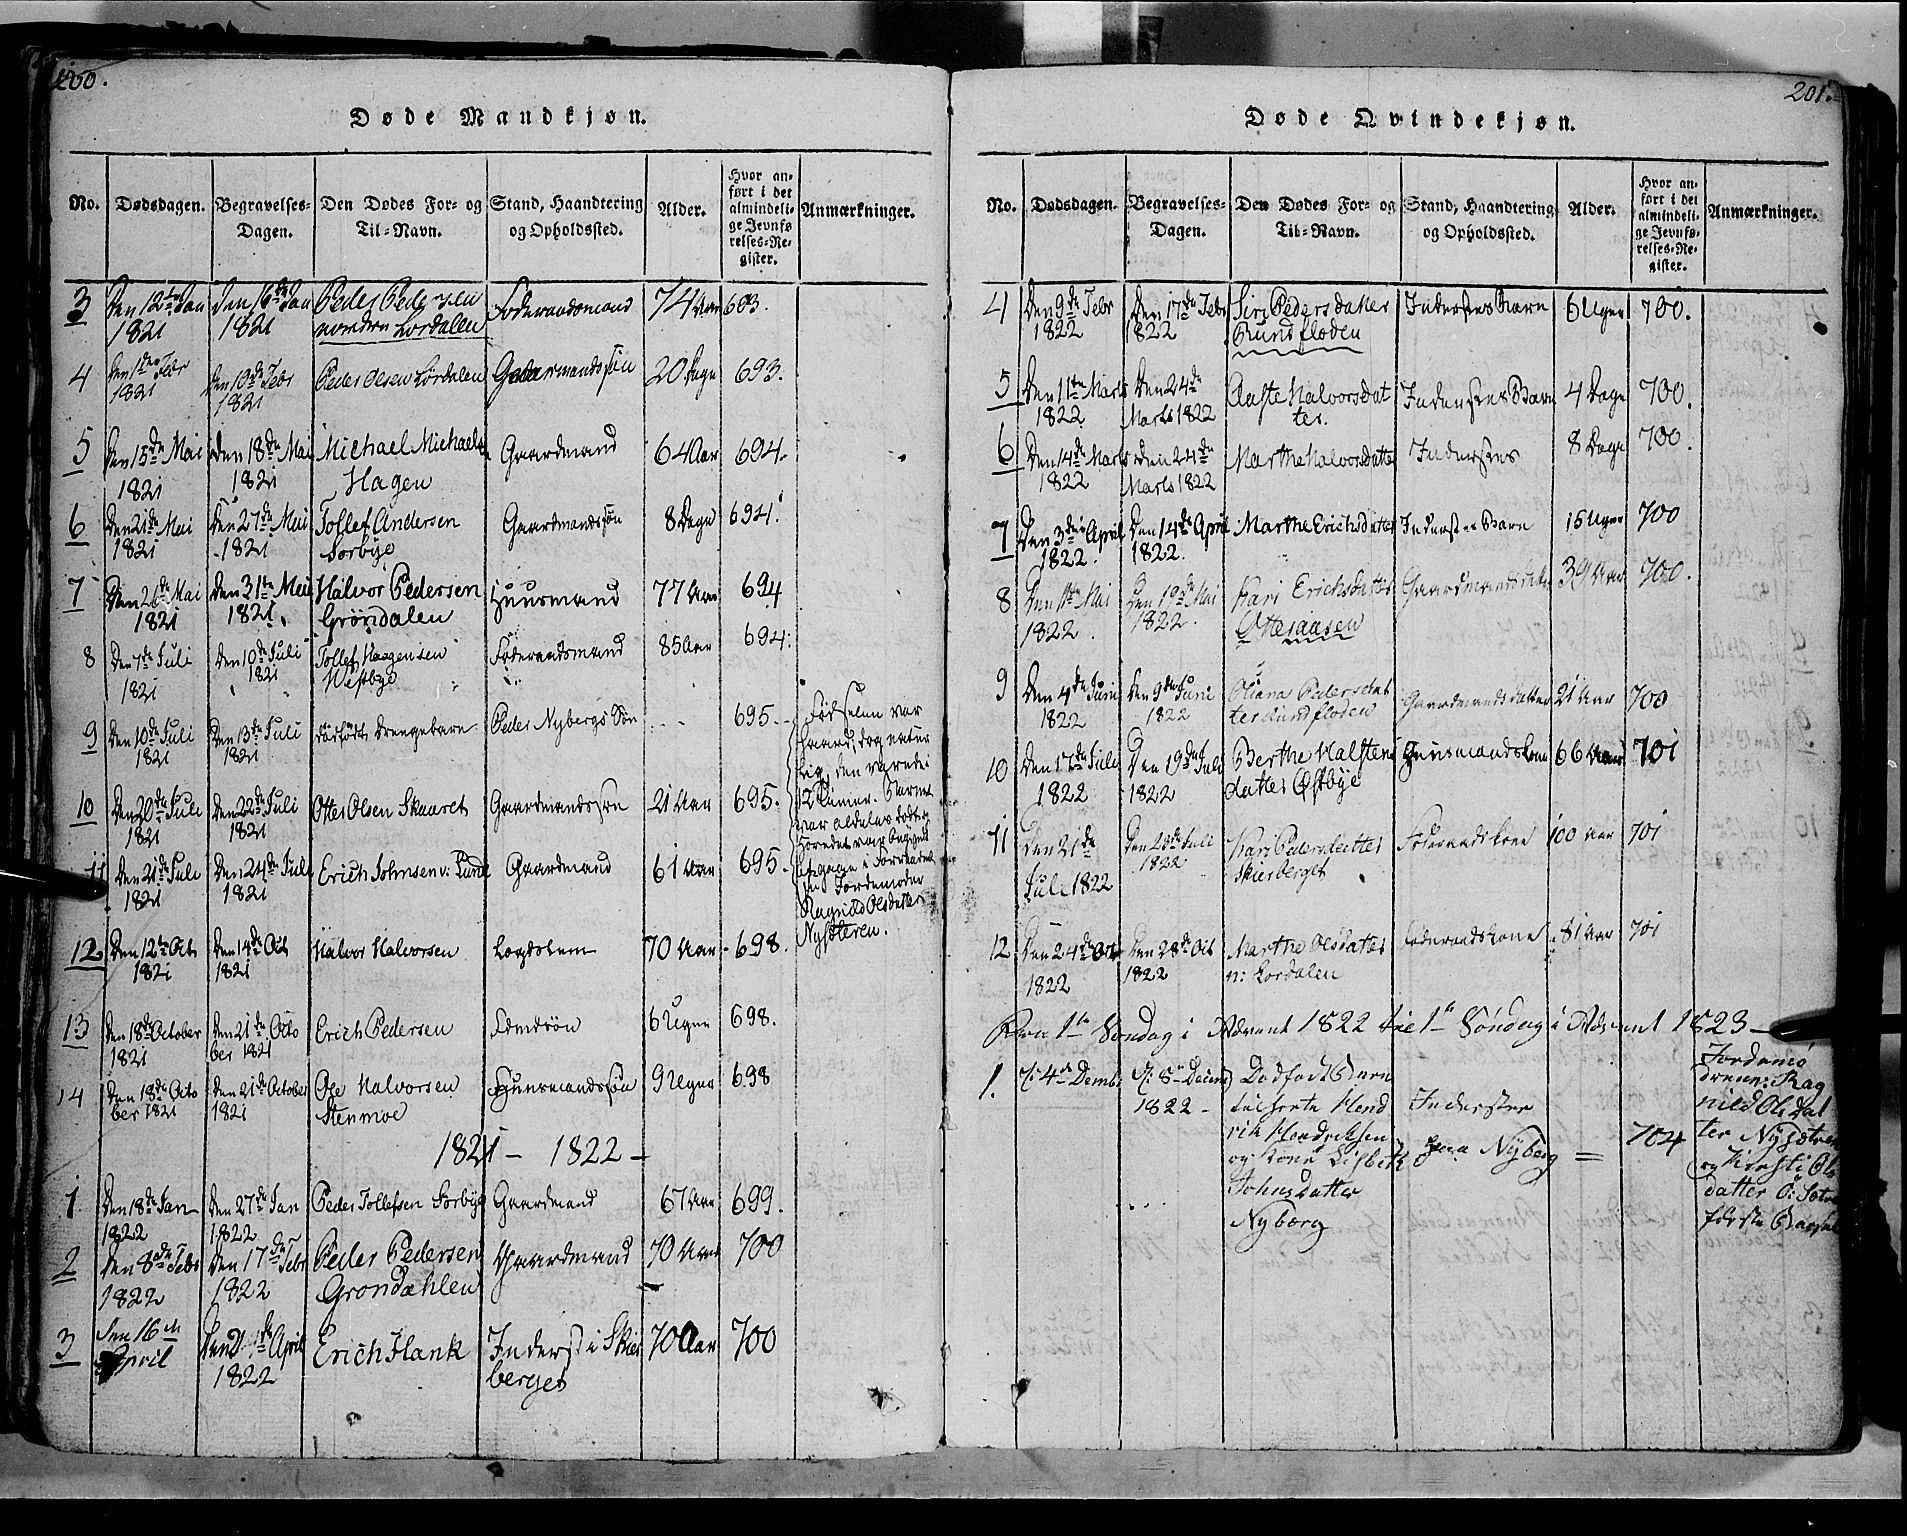 200.
Døde Mandkjøn.
No. Dødsdagen. Begravelses-Dagen. Den Dødes For- og Til-Navn. Stand, Haandtering og Opholdssted. Alder. Hvor anført i det almindelige Jevnførelses-Register. Anmærkninger.
3 Den 12te Jan 1821 Den 16de Jan 1821 Peder Pedersen nordre Lördalen Föderaadsmand 74 Aar 693.
4 Den 1de Febr 1821 Den 10de Febr 1821 Peder Olsen Lördalen Gaarmandssön 20 Dage 693.
5 Den 15de Mai 1821 Den 18de Mai 1821 Michael Michaels Hagen Gaardmand 64 Aar 694.
6 Den 21de Mai 1821 Den 27de Mai 1821 Tollef Andersen Sorbye Gaardmandssön 8 Dage 694.
7 Den 26de Mai 1821 Den 31te Mai 1821. Halvor Pedersen Gröndalen Huusmand 77 Aar 694
8 Den 7de Juli 1821 Den 10de Juli 1821 Tollef Haagensen Westbye Föderaadsmand 85 Aar 694.
9 Den 10de Juli 1821 Den 13de Juli 1821 dödfödt Drengebarn Peder Nybergs Sön 695. Födselen var haard, dog naturlig, den varede 12 Timer. Barnet var aldeles dödt Jordemoder Ragnild Olsdatter Nysæteren.
10 Den 20de Juli 1821 Den 22de Juli 1821 Otter Olsen Skaaret Gaardmandssön 21 Aar 695.
11 Den 21de Juli 1821 Den 24de Juli 1821 Erich Johnsen v: Sunde Gaardmand 61 Aar 695.
12 Den 12te Oct 1821 Den 14de Oct 1821 Halvor Halvorsen Lægdslem 70 Aar 698.
13 Den 18de October 1821 Den 21de October 1821 Erich Pedersen 6 Uger 698.
14 Den 18de October 1821 Den 21de October 1821 Ole Halvorsen Stenmoe Huusmandssön 9 Uger 698
1821 – 1822 –
1 Den 18de Jan 1822 Den 27de Jan 1822 Peder Tollefsen Sorbye Gaardmand 67 Aar 699.
2 Den 8de Febr 1822 Den 17de Febr 1822 Peder Pedersen Grondæhlen Gaardmand 70 Aar 700
3 Den 16de April Den 21de April 1822 Erich Flank Inderst i Skierberget 70 Aar 700
201.
Døde Qvindekjøn.
No. Dødsdagen. Begravelses-Dagen. Den Dødes For- og Til-Navn. Stand, Haandtering og Opholdssted. Alder. Hvor anført i det almindelige Jevnførelses-Register. Anmærkninger.
4 Den 9de Febr 1822 Den 17de Febr 1822 Siri Pedersdatter Rundfloden Inderstes Barn 6 Uger 700.
5 Den 11te Marts 1822 Den 24de Marts 1822 Aaste Halvorsdatter. Inderstes Barn 4 Dage 700.
6 Den 14de Marts 1822 Den 24de Marts 1822 Marthe Halvorsdatter Inderstes 8 Dage 700.
7 Den 3die April 1822. Den 14de April 1822. Marthe Erichsdatter Inderstes Barn 15 Uger 700
8 Den 11te Mai 1822. Den 19de Mai 1822. Kari Erichsdatter Ottesaasen Gaardmandsdatter 39 Aar 700.
9 Den 4de Juni 1822 Den 9de Juni 1822 Oliana Pedersdatter Rundfloden Gaardmandsdatter 21 Aar 700
10 Den 17de Juli 1822 Den 19de Juli 1822 Berthe Halstensdatter Østbye Huusmandskone 66 Aar 701
11 Den 21de Juli 1822 Den 28de Juli 1822 Kari Pedersdatter Skierberget Föderaadskone 100 Aar 701
12 Den 24de Oct 1822 Den 28de Oct 1822 Marthe Olsdatter n: Lordalen Föderaadskone 81 Aar 701
Fra 1te Söndag i Advent 1822 til 1te Söndag i Advent 1823 –
1. D: 4de Decemb: D: 8de Decemb 1822 – Dödfödt Barn tilhörte Hendrik Hendriksen og Kone Lisbeth Johnsdatter Nyborg Inderster paa Nyberg = 704 Jordemödrene: Ragnild Olsdatter Nysætren og Kirsti Olsdatter Ö: Sætre